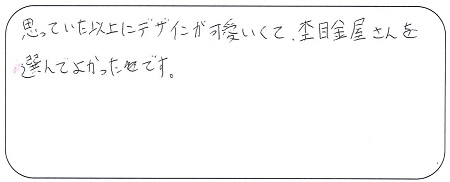 思っていた以上にデザインが可愛いくて、杢目金屋さんを
選んでよかったです。